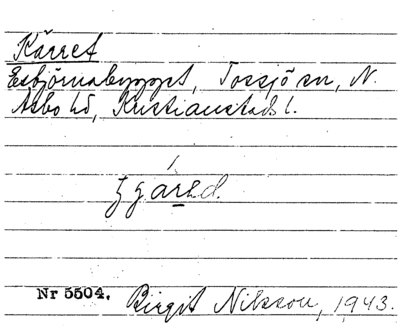 Kärret
Esbjörnabygget, Tossjö sn, N.
Åsbo hd, Kristianstads l.
gård.
Nr 5504. Birgit Nilsson, 1943.